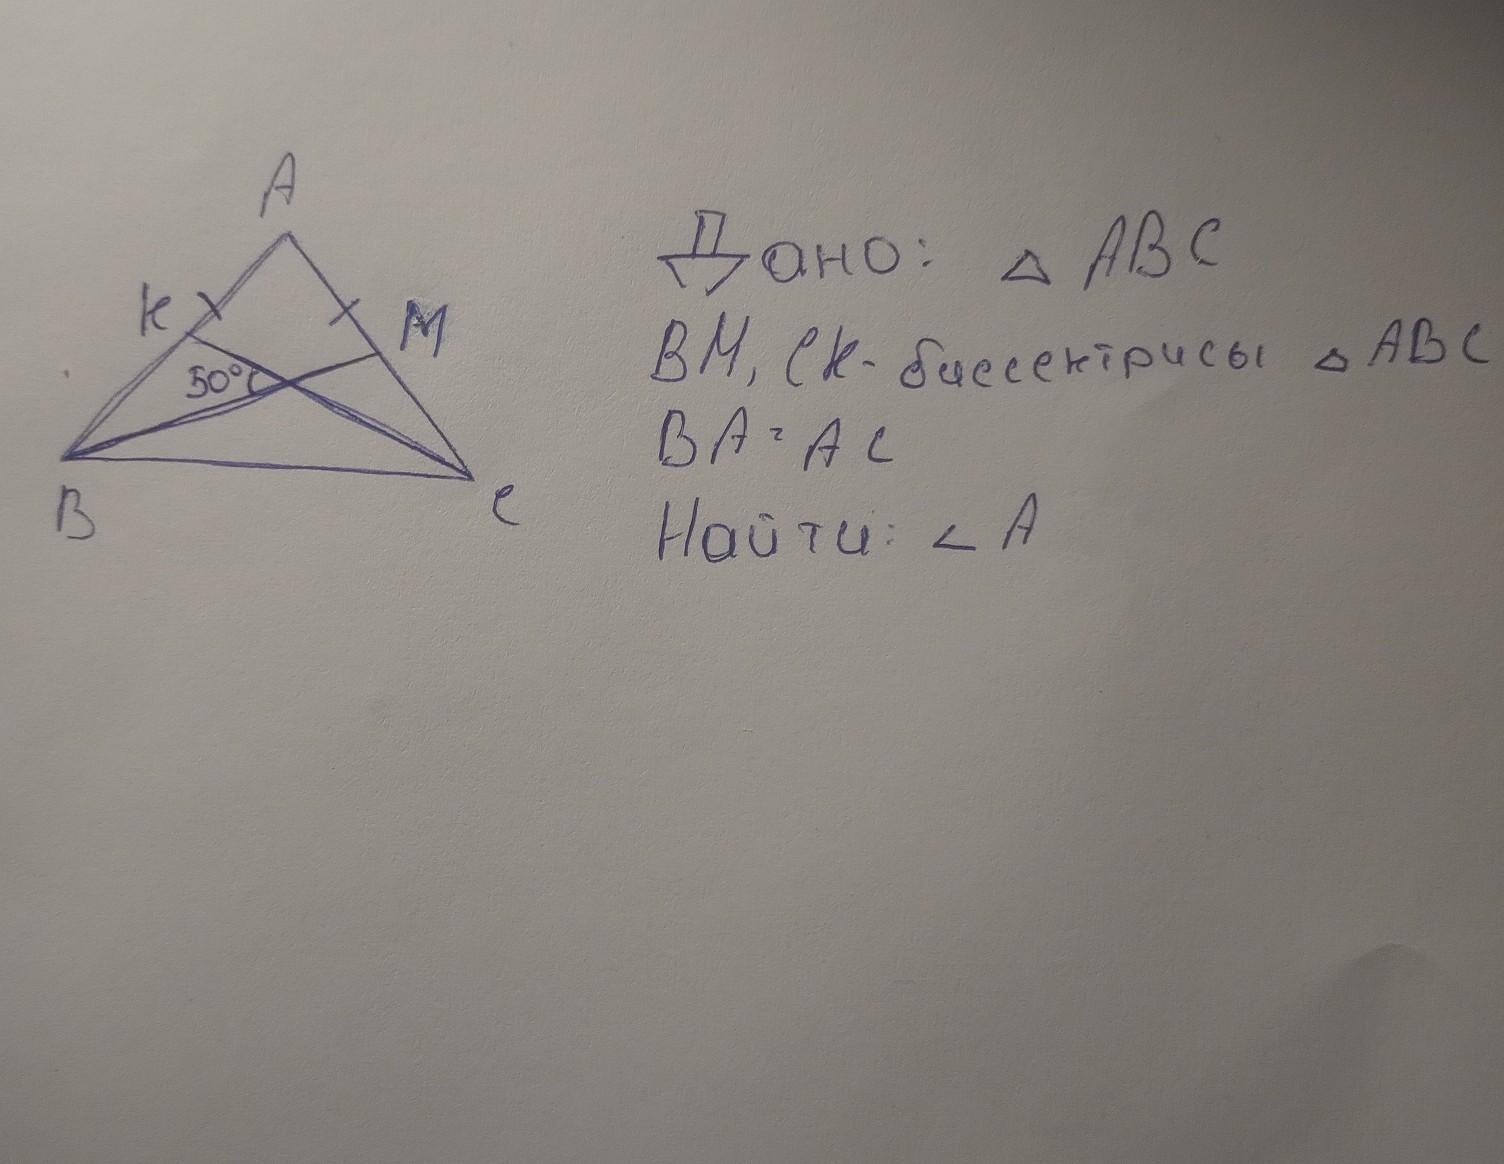 A
K
M
50°
B
C
Дано: △ ABC
BM, CK - биссектрисы △ ABC
BA = AC
Найти: ∠ A